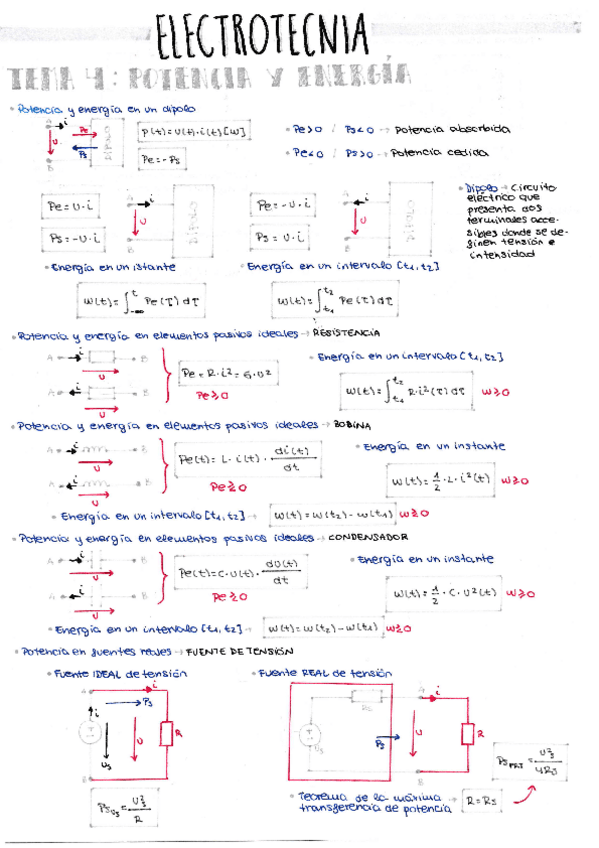 ELECTROTECNIA
TEMA 4: POTENCIA Y ENERGÍA
• Potencia y energía en un dipolo
A i
U Pe
Ps
B
DIPOLO
p(t)=u(t)·i(t)[W]
Pe=-Ps
• Pe>0 / Ps<0 → Potencia absorbida
• Pe<0 / Ps>0 → Potencia cedida
Pe=U·i
Ps=-U·i
A i
U
B
DIPOLO
Pe=-U·i
Ps=U·i
A i
U
B
DIPOLO
• Dipolo → Circuito
eléctrico que
presenta dos
terminales acce-
sibles donde se de-
finen tensión e
intensidad
• Energía en un istante
• Energía en un intervalo [t1,t2]
W(t)=∫-∞^t Pe(τ)dτ
W(t)=∫t1^t2 Pe(τ)dτ
• Potencia y energía en elementos pasivos ideales → RESISTENCIA
A i B
U
A i B
U
Pe=R·i²=G·U²
Pe≥0
• Energía en un intervalo [t1,t2]
W(t)=∫t1^t2 R·i²(τ)dτ W≥0
• Potencia y energía en elementos pasivos ideales → BOBINA
A i B
U
A i B
U
Pe(t)=L·i(t)·di(t)/dt
Pe≷0
• Energía en un instante
W(t)=1/2·L·i²(t) W≥0
• Energía en un intervalo [t1,t2] → W(t)=W(t2)-W(t1) W≷0
• Potencia y energía en elementos pasivos ideales → CONDENSADOR
A i B
U
A i B
U
Pe(t)=C·U(t)·dU(t)/dt
Pe≷0
• Energía en un instante
W(t)=1/2·C·U²(t) W≥0
• Energía en un intervalo [t1,t2] → W(t)=W(t2)-W(t1) W≷0
• Potencia en fuentes reales → FUENTE DE TENSIÓN
• Fuente IDEAL de tensión
• Fuente REAL de tensión
A i
Ps
i
Us U R
B
PsUs=Us²/R
Rs
A i
Us Ps U R
B
Ps MAX=Us²/4Rs
• Teorema de la máxima
transferencia de potencia → R=Rs